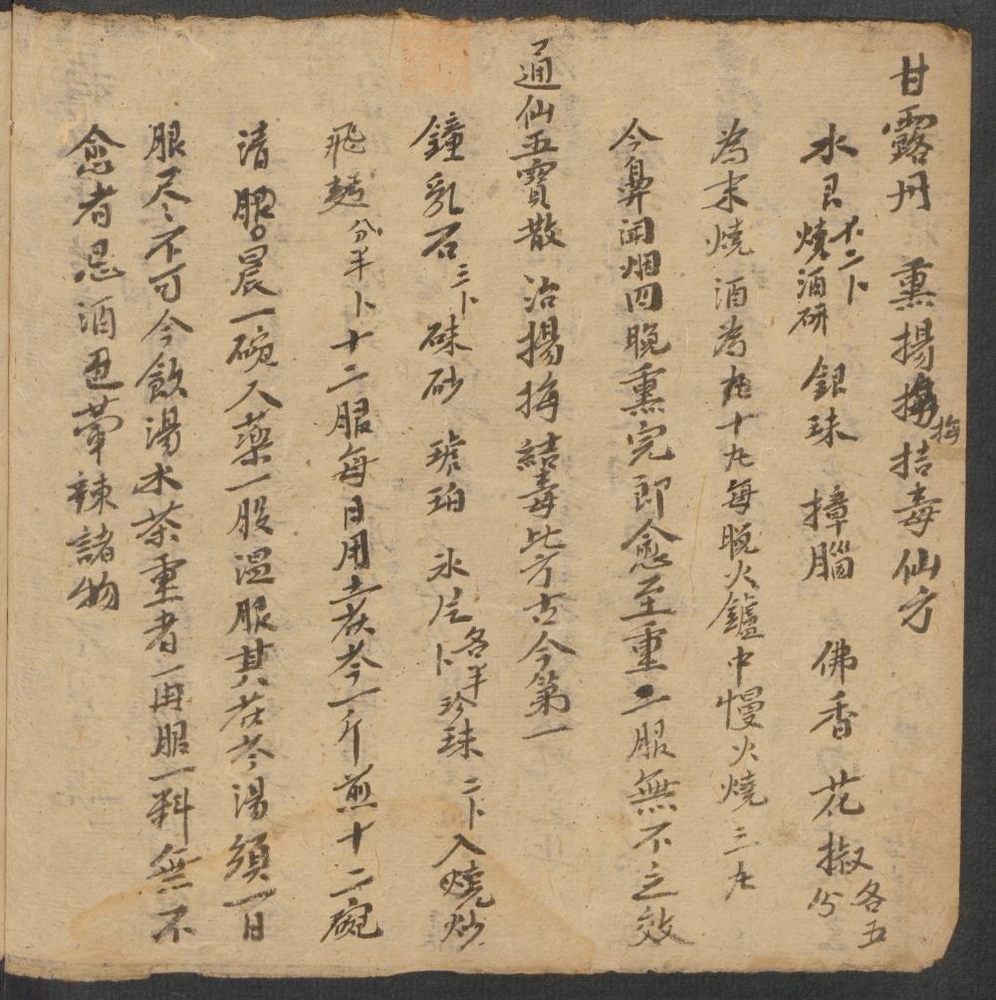 甘露丹 熏揚梅拮毒仙方
水艮不二卜燒酒研 銀珠 樟腦 佛香 花椒各五分
為末燒酒為丸十九每晚火鑪中慢火燒三丸
今鼻闻烟四晚熏完即愈至重二服無不之效
通仙五寶散 治揚梅結毒比方古今第一
鐘乳石三卜 硃砂 琥珀 氷片各半卜珍珠二卜入燒炒
飛麪分半卜十二服每日用土茯苓一斤煎十二碗
清服。晨一碗入藥一服溫服其茯苓湯須一日
服尽々不可今飲湯水茶重者一再服一料無不
愈者忌酒色葷辣諸物